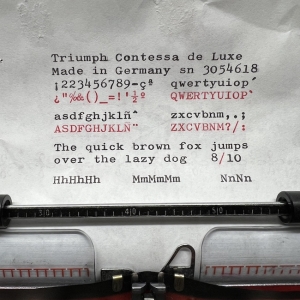 Triumph Contessa de Luxe
Made in Germany sn 3054618
¡223456789-çª qwertyuiop´
¿"%&()_=!'½º QWERTYUIOP`
asdfghjklñ~ zxcvbnm,.;
ASDFGHJKLÑ¨ ZXCVBNM?/:
The quick brown fox jumps
over the lazy dog 8/10
HhHhHh MmMmMm NnNn
30 40 50